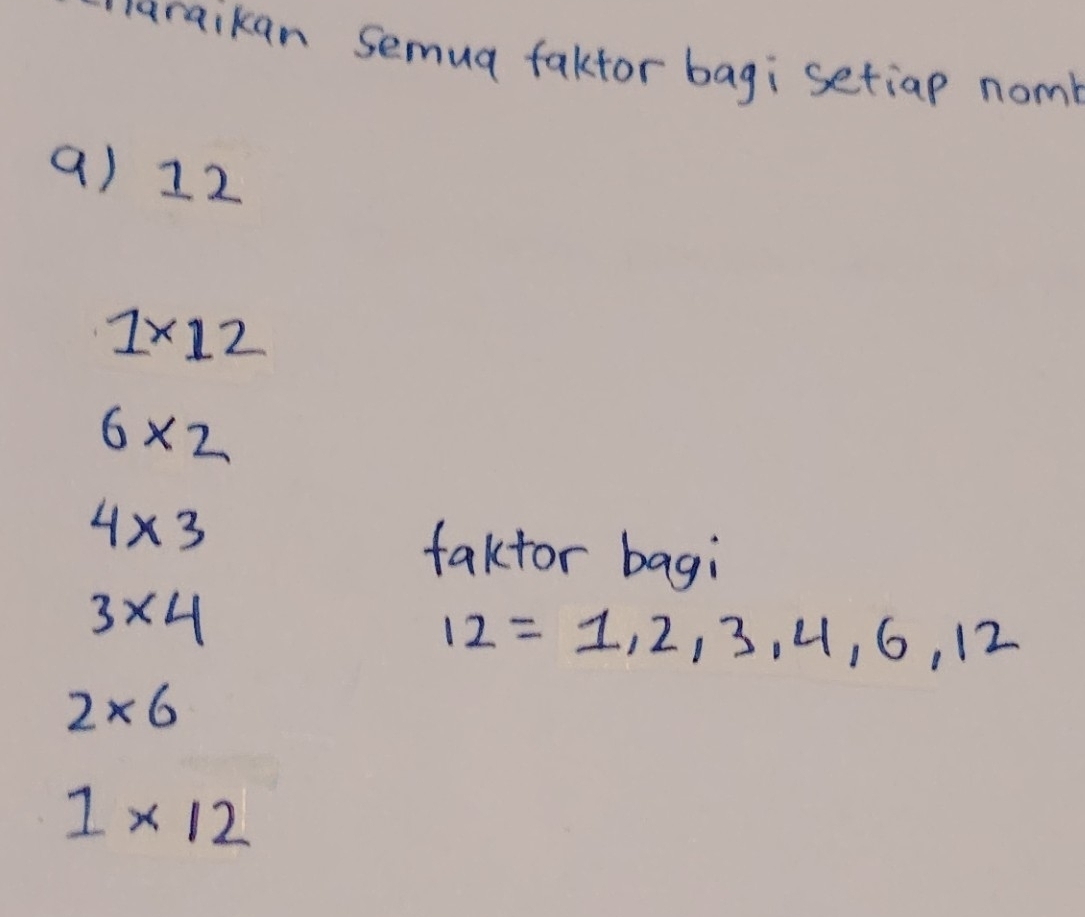 semua faktor bagi setiap
a) 12
1×12
6×2
4×3
3×4
2×6
1×12
faktor bagi
12 = 1,2,3,4,6,12